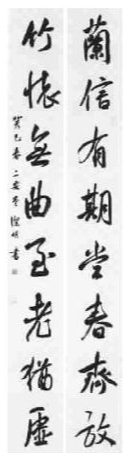 蘭信有期當春齊放
竹懷無曲至老猶虛
癸巳春二安堂書